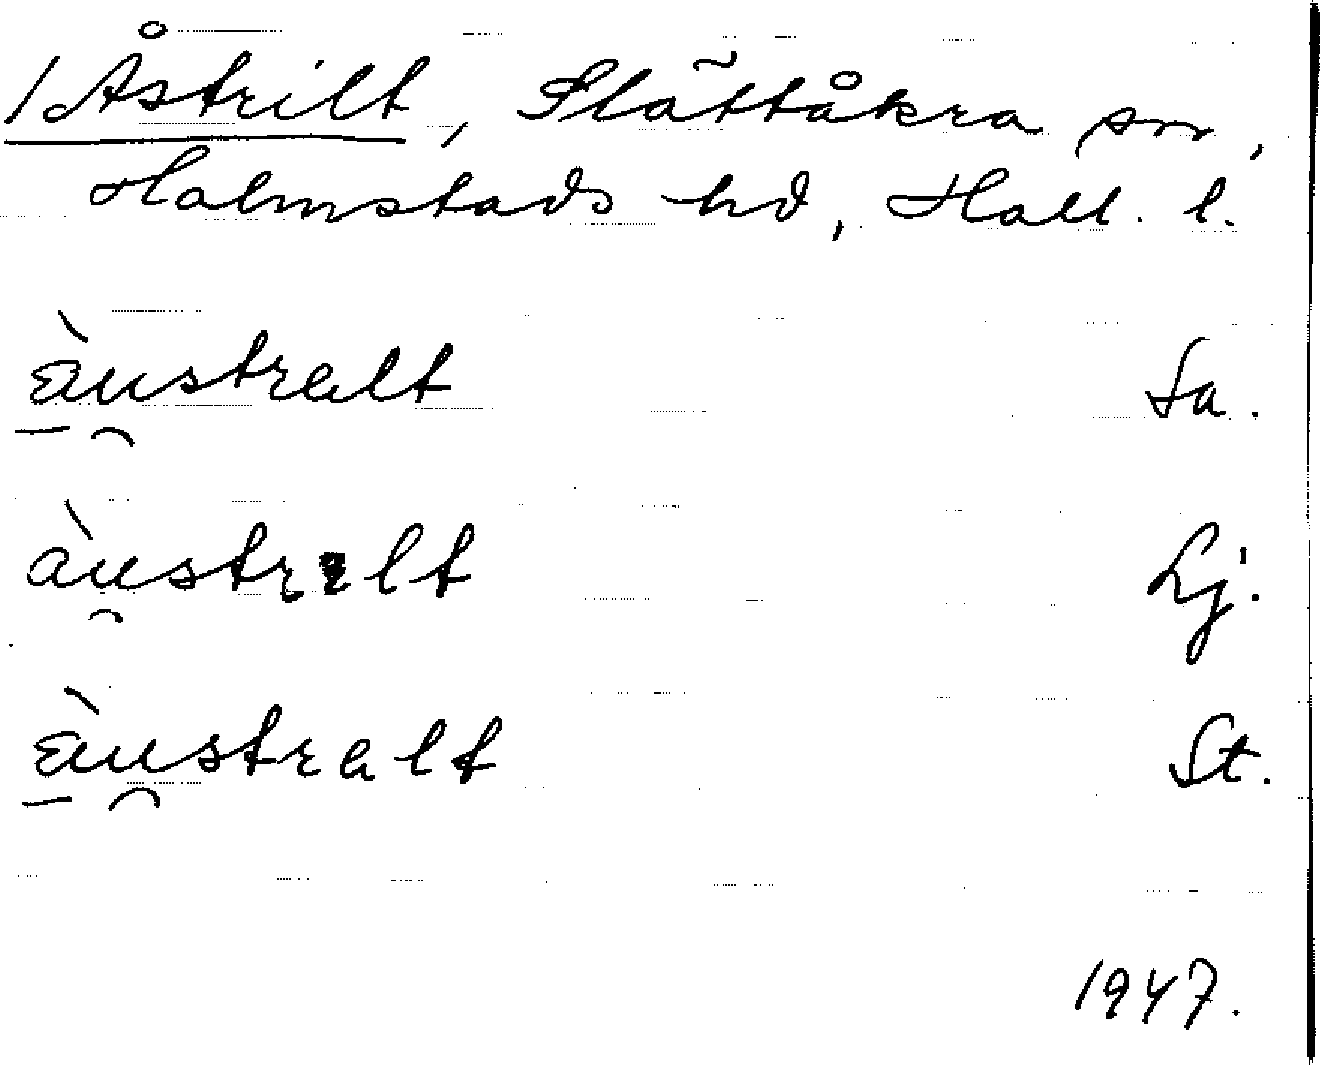 1 Åstrilt, Slättåkra sn,
Halmstads hd, Hall. l.
ὲustralt Sa.
àustrelt Lj.
ὲustralt St.
1947.